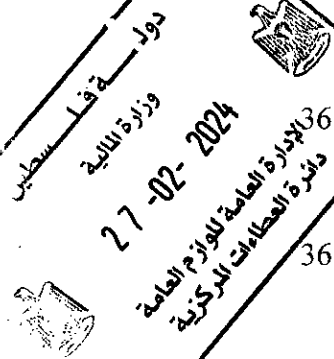 دولـــة فلـــسطين
وزارة المالية
27 -02- 2024
الإدارة العامة للوازم العامة
دائرة العطاءات المركزية
36
36